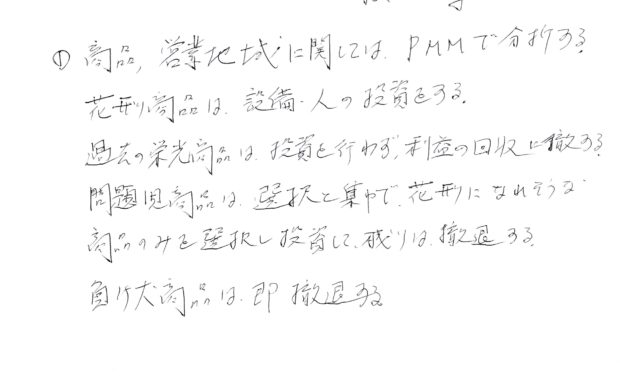 ① 商品,営業地域に関しては、PMMで分析する。
花形商品は、設備・人の投資をする。
過去の栄光商品は、投資を行わず、利益の回収に徹する。
問題児商品は、選択と集中で、花形になれそうな
商品のみを選択し投資して、残りは、撤退する。
負け犬商品は、即撤退する。